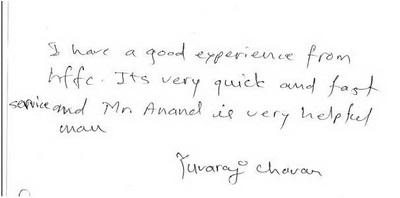 I have a good experience from
hffc. Its very quick and fast
service and Mr. Anand is very helpful
man
Yuvaraj Chavan